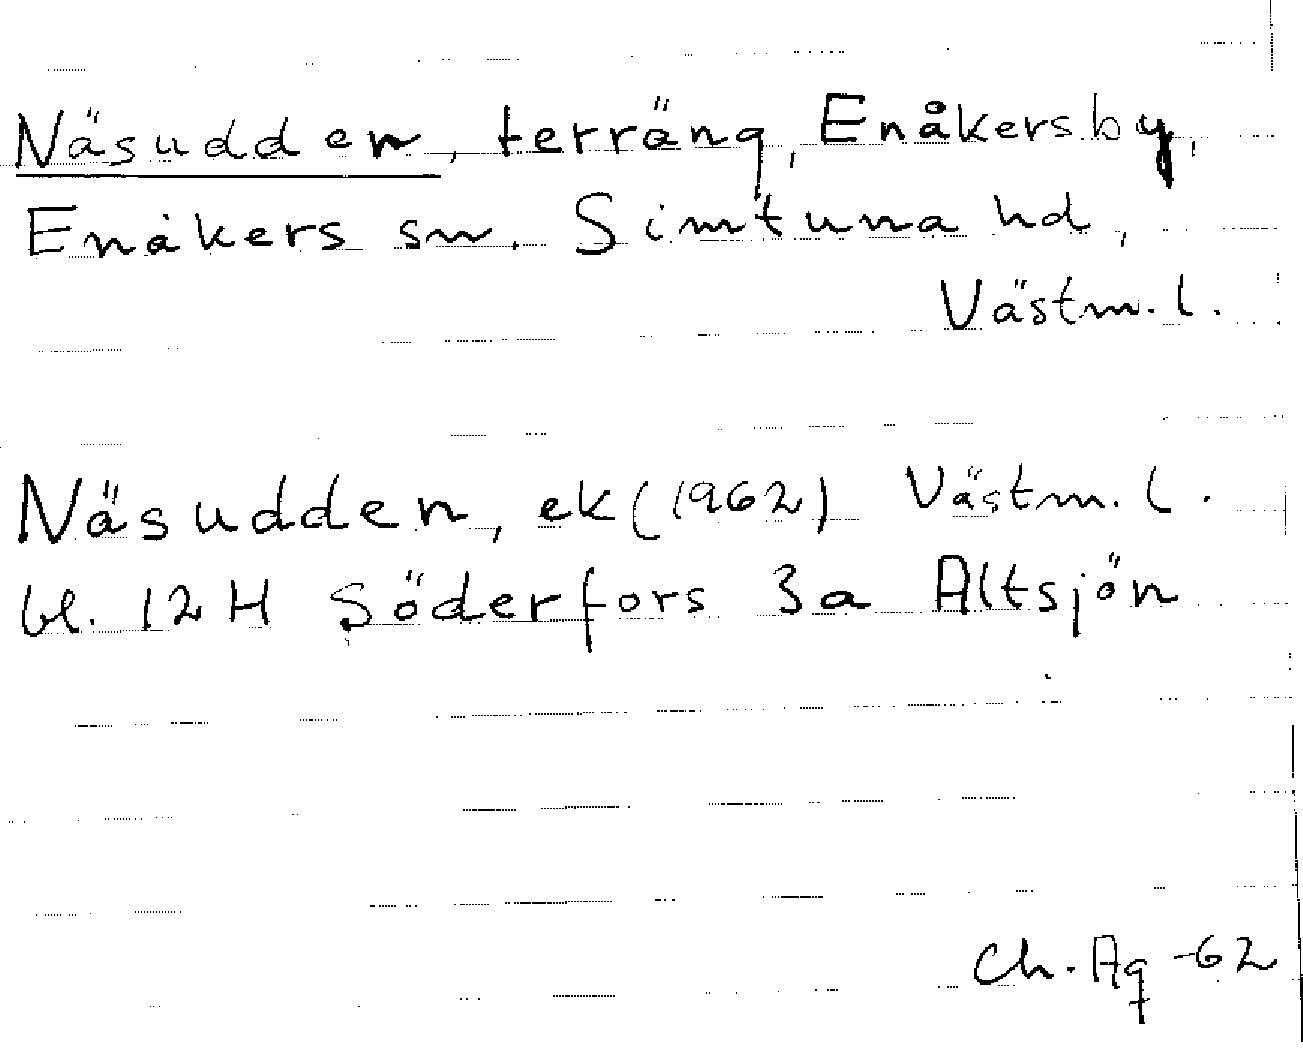 Näsudden, terräng, Enåkersby,
Enåkers sn. Simtuna hd,
Västm. l.
Näsudden, ek (1962) Västm. l.
bl. 12 H Söderfors 3a Altsjön
Ch. Ag -62